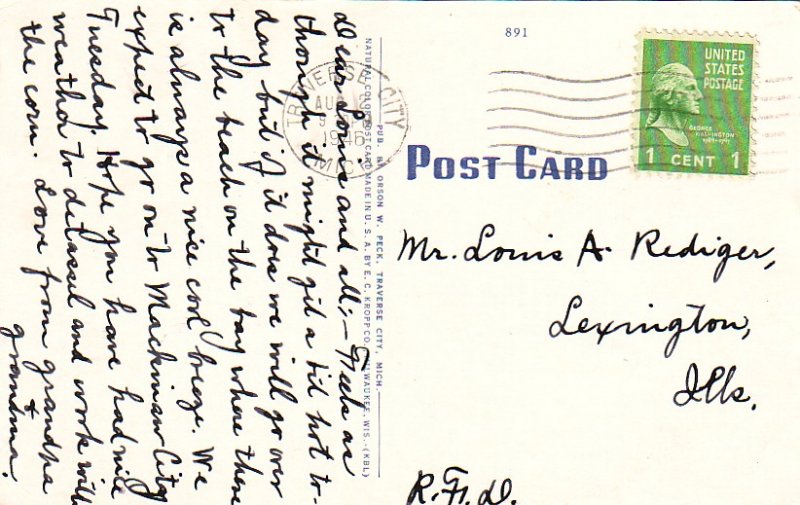 Dear Louis and all;- Feels as
though it might get a bit hot to-
day but if it does we will go over
to the beach on the bay where there
is always a nice cool breeze. We
expect to go on to Mackinaw City
Tuesday. Hope you have had nice
weather to detassel and work with
the corn. Love from grandpa
+
grandma.
NATURAL COLOR POST CARD MADE IN U. S. A. BY E. C. KROPP CO., MILWAUKEE, WIS.-(KBL)
PUB. BY ORSON W. PECK, TRAVERSE CITY, MICH.
891
TRAVERSE CITY
AUG 2
1946
MICH.
UNITED
STATES
POSTAGE
GEORGE
WASHINGTON
1789-1797
1 CENT 1
POST CARD
Mr. Louis A. Rediger,
Lexington,
Ills.
R.F.D.